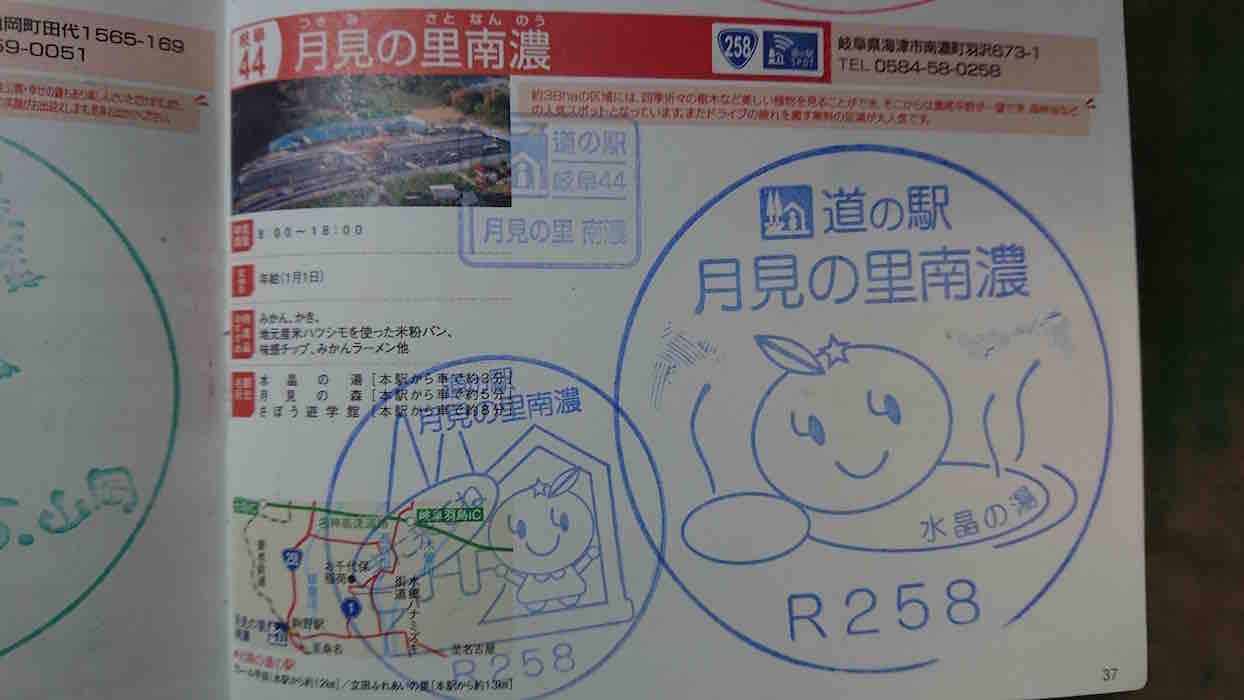 岡町田代1565-169
59-0051
岐阜
44
つきみ さとなんのう
月見の里南濃
258
道の駅
SPOT
岐阜県海津市南濃町羽沢673-1
TEL 0584-58-0258
約38haの区域には、四季折々の樹木など美しい植物を見ることができ、
の人気スポットとなっています。またドライブの疲れを癒す無料の足湯が大人気です。
道の駅
岐阜44
月見の里 南濃
8:00〜18:00
年始(1月1日)
みかん、かき、
地元産米ハツシモを使った米粉パン、
味感チップ、みかんラーメン他
水晶の湯[本駅から車で約3分]
月見の森[本駅から車で約5分]
さぼう遊学館[本駅から車で約8分]
道の駅
月見の里南濃
水晶の湯
R258
岐阜羽島IC
お千代保
稲荷
1
駒野駅
至桑名
至名古屋
水郷ハナミズキ
街道
立田ふれあいの里[本駅から約13km]
道の駅
月見の里南濃
R258
37